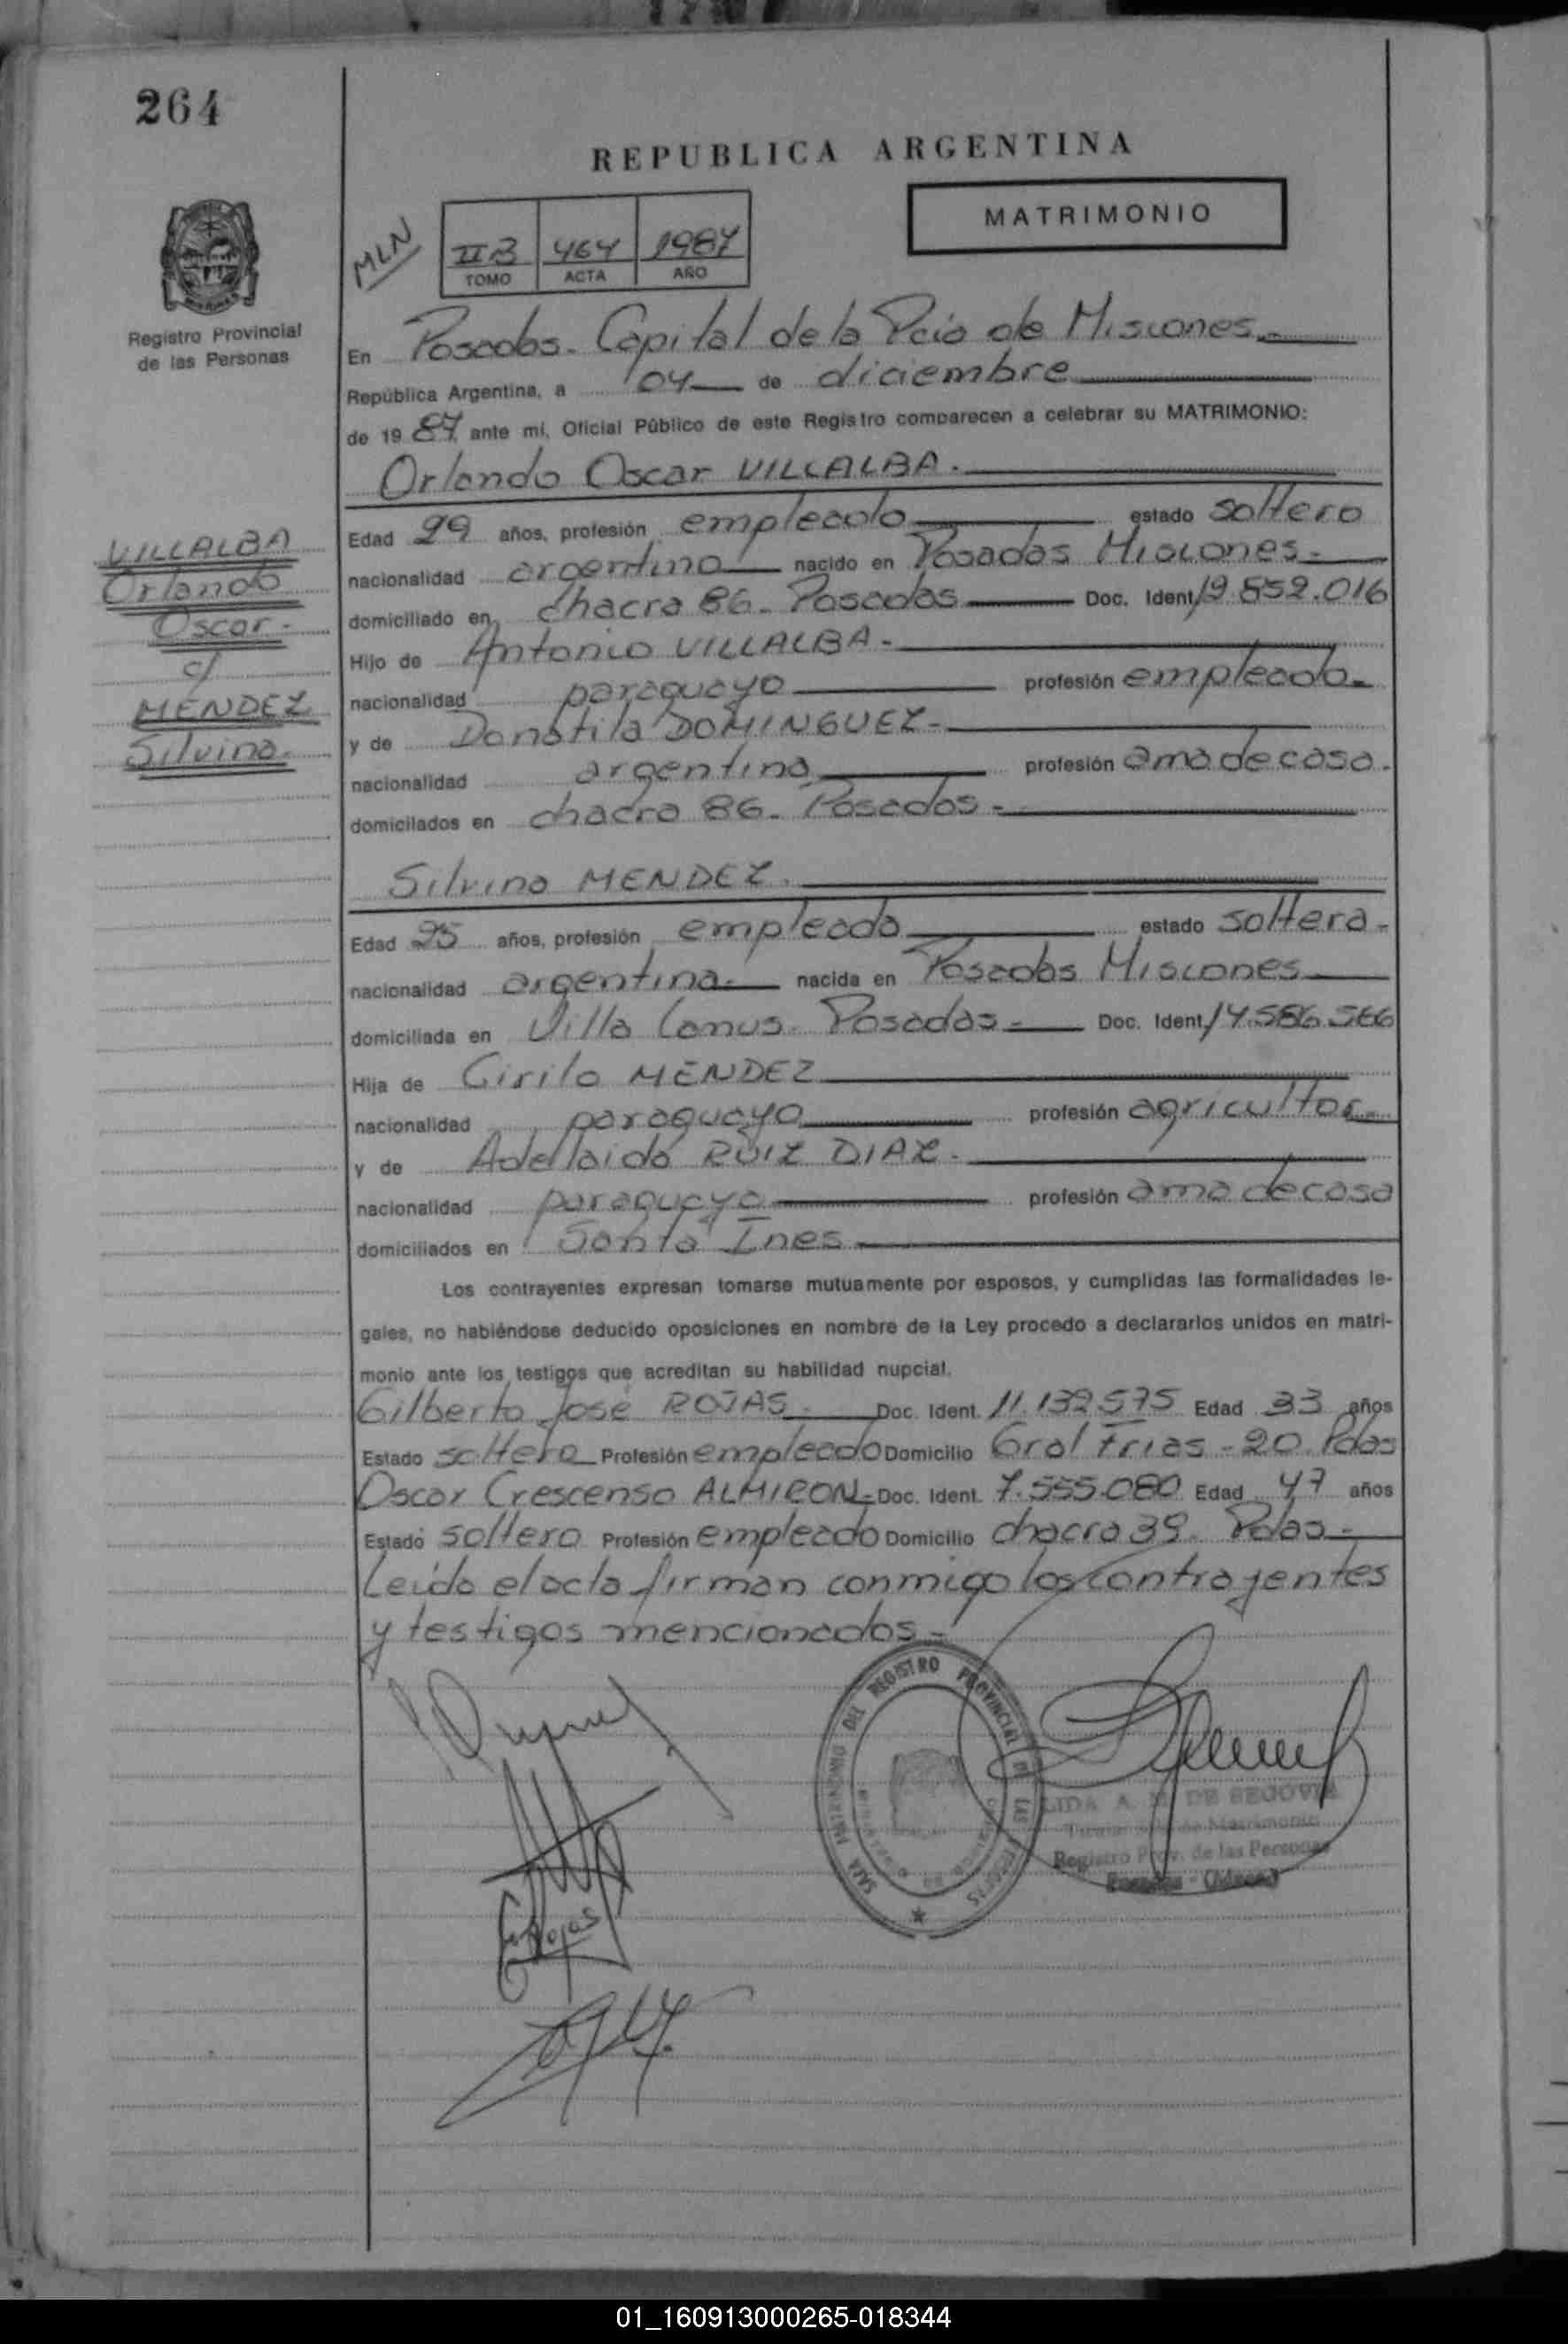 264
REPUBLICA ARGENTINA
MATRIMONIO
MLN
II B 464 1987
TOMO ACTA AÑO
Registro Provincial
de las Personas
En Posadas. Capital de la Pcia de Misiones.
República Argentina, a 04 de diciembre
de 19 87 ante mi, Oficial Público de este Registro comparecen a celebrar su MATRIMONIO:
Orlando Oscar VILLALBA.
VILLALBA
Orlando
Oscar.-
c/
MENDEZ
Silvina.
Edad 29 años, profesión empleado estado soltero
nacionalidad argentino nacido en Posadas Misiones.-
domiciliado en chacra 86. Posadas Doc. Ident. 12.852.016
Hijo de Antonio VILLALBA.-
nacionalidad paraguayo profesión empleado.
y de Donatila DOMINGUEZ.-
nacionalidad argentina profesión ama de casa.
domicilados en chacra 86. Posadas.-
Silvina MENDEZ.
Edad 25 años, profesión empleada estado soltera.-
nacionalidad argentina.- nacida en Posadas Misiones
domiciliada en Villa Lanus. Posadas.- Doc. Ident. 14.586.566
Hija de Cirilo MENDEZ
nacionalidad paraguayo profesión agricultor.
y de Adellaida RUIZ DIAZ.
nacionalidad paraguaya profesión ama de casa
domiciliados en Santa Ines
Los contrayentes expresan tomarse mutuamente por esposos, y cumplidas las formalidades le-
gales, no habiéndose deducido oposiciones en nombre de la Ley procedo a declararlos unidos en matri-
monio ante los testigos que acreditan su habilidad nupcial.
Gilberto José ROJAS. Doc. Ident. 11.132.575 Edad 33 años
Estado soltero Profesión empleado Domicilio Gral Frias - 20. Pdas
Oscar Crescenso ALMIRON.- Doc. Ident. 7.555.080 Edad 47 años
Estado soltero Profesión empleado Domicilio chacra 39. Pdas.-
Leida el acta firman conmigo los contrayentes
y testigos mencionados.-
SALA MATRIMONIO DEL REGISTRO PROVINCIAL DE LAS PERSONAS
LIDA A. M. DE SEGOVIA
de Matrimonio
Registro Prov. de las Personas
Posadas - (Mnes)
Rojas
01_160913000265-018344